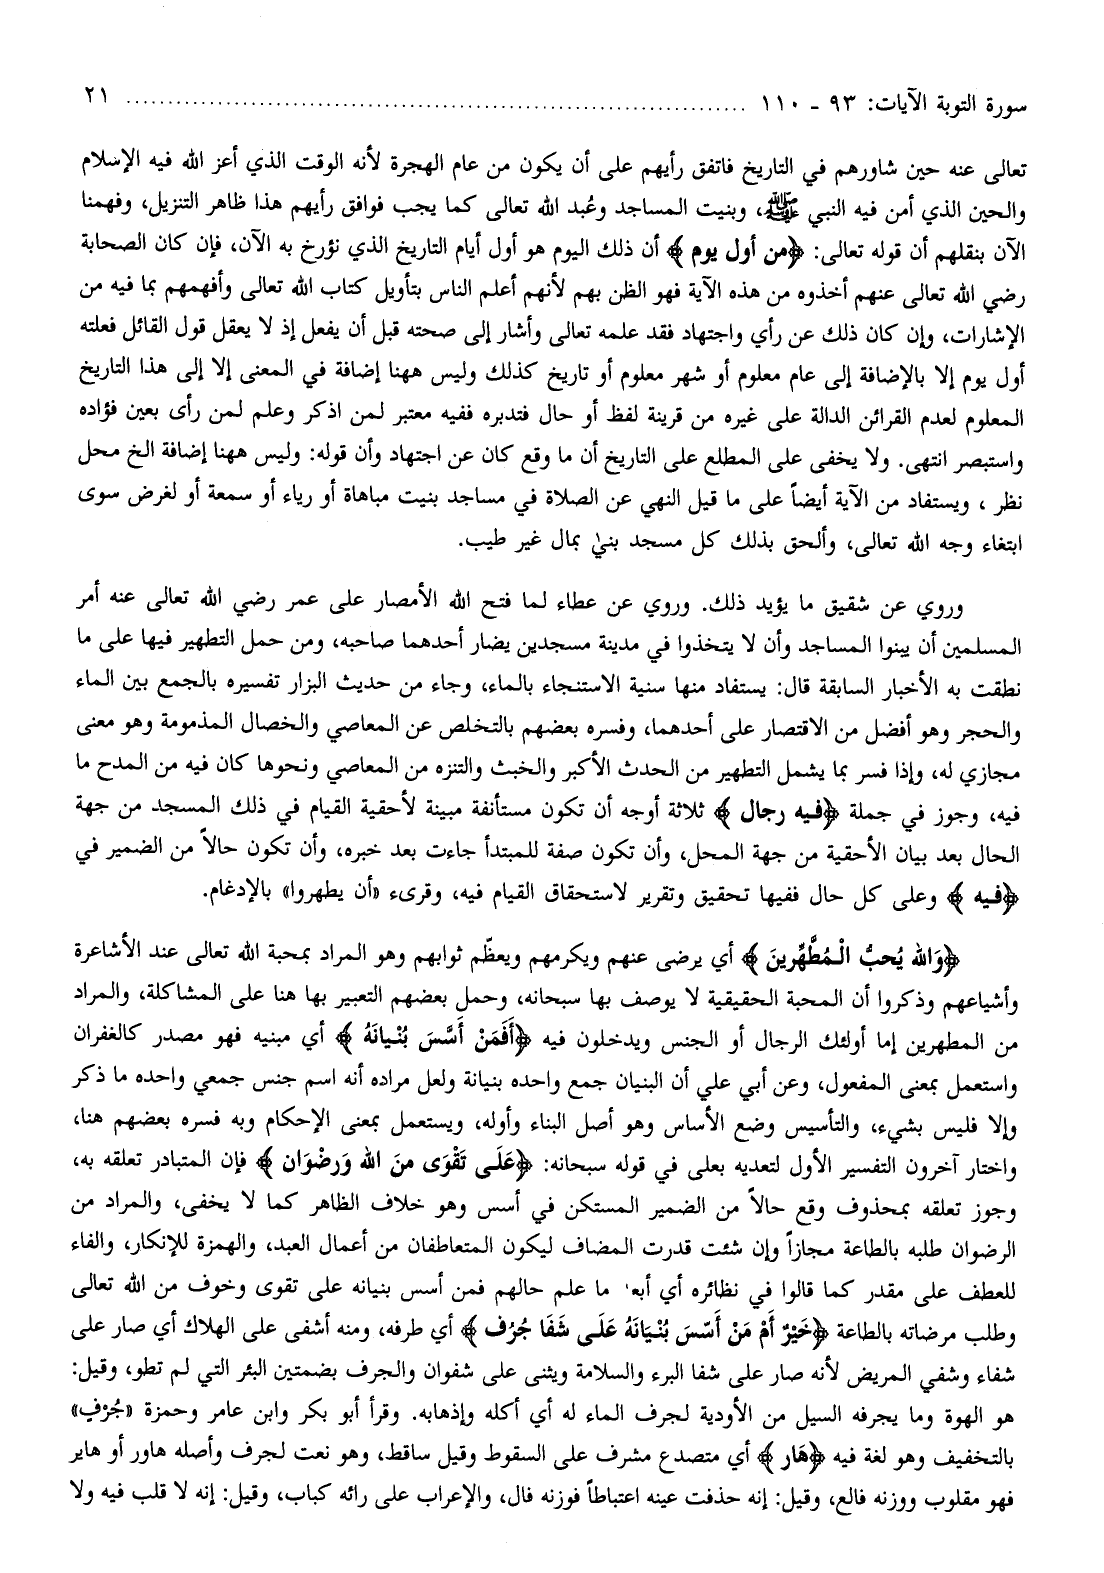 سورة التوبة الآيات: ٩٣ - ١١٠ ........................................................ ٢١
تعالى عنه حين شاورهم في التاريخ فاتفق رأيهم على أن يكون من عام الهجرة لأنه الوقت الذي أعز الله فيه الإسلام
والحين الذي أمن فيه النبي ﷺ، وبنيت المساجد وعُبد الله تعالى كما يجب فوافق رأيهم هذا ظاهر التنزيل، وفهمنا
الآن بنقلهم أن قوله تعالى: ﴿من أول يوم﴾ أن ذلك اليوم هو أول أيام التاريخ الذي نؤرخ به الآن، فإن كان الصحابة
رضي الله تعالى عنهم أخذوه من هذه الآية فهو الظن بهم لأنهم أعلم الناس بتأويل كتاب الله تعالى وأفهمهم بما فيه من
الإشارات، وإن كان ذلك عن رأي واجتهاد فقد علمه تعالى وأشار إلى صحته قبل أن يفعل إذ لا يعقل قول القائل فعلته
أول يوم إلا بالإضافة إلى عام معلوم أو شهر معلوم أو تاريخ كذلك وليس ههنا إضافة في المعنى إلا إلى هذا التاريخ
المعلوم لعدم القرائن الدالة على غيره من قرينة لفظ أو حال فتدبره ففيه معتبر لمن اذكر وعلم لمن رأى بعين فؤاده
واستبصر انتهى. ولا يخفى على المطلع على التاريخ أن ما وقع كان عن اجتهاد وأن قوله: وليس ههنا إضافة الخ محل
نظر ، ويستفاد من الآية أيضاً على ما قيل النهي عن الصلاة في مساجد بنيت مباهاة أو رياء أو سمعة أو لغرض سوى
ابتغاء وجه الله تعالى، وألحق بذلك كل مسجد بني بمال غير طيب.
وروي عن شقيق ما يؤيد ذلك. وروي عن عطاء لما فتح الله الأمصار على عمر رضي الله تعالى عنه أمر
المسلمين أن يبنوا المساجد وأن لا يتخذوا في مدينة مسجدين يضار أحدهما صاحبه، ومن حمل التطهير فيها على ما
نطقت به الأخبار السابقة قال: يستفاد منها سنية الاستنجاء بالماء، وجاء من حديث البزار تفسيره بالجمع بين الماء
والحجر وهو أفضل من الاقتصار على أحدهما، وفسره بعضهم بالتخلص عن المعاصي والخصال المذمومة وهو معنى
مجازي له، وإذا فسر بما يشمل التطهير من الحدث الأكبر والخبث والتنزه من المعاصي ونحوها كان فيه من المدح ما
فيه، وجوز في جملة ﴿فيه رجال﴾ ثلاثة أوجه أن تكون مستأنفة مبينة لأحقية القيام في ذلك المسجد من جهة
الحال بعد بيان الأحقية من جهة المحل، وأن تكون صفة للمبتدأ جاءت بعد خبره، وأن تكون حالاً من الضمير في
﴿فيه﴾ وعلى كل حال ففيها تحقيق وتقرير لاستحقاق القيام فيه، وقرىء «أن يطهروا» بالإدغام.
﴿وَالله يُحبُّ الْمُطَّهِّرينَ﴾ أي يرضى عنهم ويكرمهم ويعظّم ثوابهم وهو المراد بمحبة الله تعالى عند الأشاعرة
وأشياعهم وذكروا أن المحبة الحقيقية لا يوصف بها سبحانه، وحمل بعضهم التعبير بها هنا على المشاكلة، والمراد
من المطهرين إما أولئك الرجال أو الجنس ويدخلون فيه ﴿أَفَمَنْ أَسَّسَ بُنْيانَهُ﴾ أي مبنيه فهو مصدر كالغفران
واستعمل بمعنى المفعول، وعن أبي علي أن البنيان جمع واحده بنيانة ولعل مراده أنه اسم جنس جمعي واحده ما ذكر
وإلا فليس بشيء، والتأسيس وضع الأساس وهو أصل البناء وأوله، ويستعمل بمعنى الإحكام وبه فسره بعضهم هنا،
واختار آخرون التفسير الأول لتعديه بعلى في قوله سبحانه: ﴿عَلَى تَقْوَى منَ الله وَرضْوَان﴾ فإن المتبادر تعلقه به،
وجوز تعلقه بمحذوف وقع حالاً من الضمير المستكن في أسس وهو خلاف الظاهر كما لا يخفى، والمراد من
الرضوان طلبه بالطاعة مجازاً وإن شئت قدرت المضاف ليكون المتعاطفان من أعمال العبد، والهمزة للإنكار، والفاء
للعطف على مقدر كما قالوا في نظائره أي أبعد ما علم حالهم فمن أسس بنيانه على تقوى وخوف من الله تعالى
وطلب مرضاته بالطاعة ﴿خَيْرٌ أَمْ مَنْ أَسَّسَ بُنْيَانَهُ عَلَى شَفَا جُرُف﴾ أي طرفه، ومنه أشفى على الهلاك أي صار على
شفاء وشفي المريض لأنه صار على شفا البرء والسلامة ويثنى على شفوان والجرف بضمتين البئر التي لم تطو، وقيل:
هو الهوة وما يجرفه السيل من الأودية لجرف الماء له أي أكله وإذهابه. وقرأ أبو بكر وابن عامر وحمزة «جُرْفٍ»
بالتخفيف وهو لغة فيه ﴿هَار﴾ أي متصدع مشرف على السقوط وقيل ساقط، وهو نعت لجرف وأصله هاور أو هاير
فهو مقلوب ووزنه فالع، وقيل: إنه حذفت عينه اعتباطاً فوزنه فال، والإعراب على رائه كباب، وقيل: إنه لا قلب فيه ولا